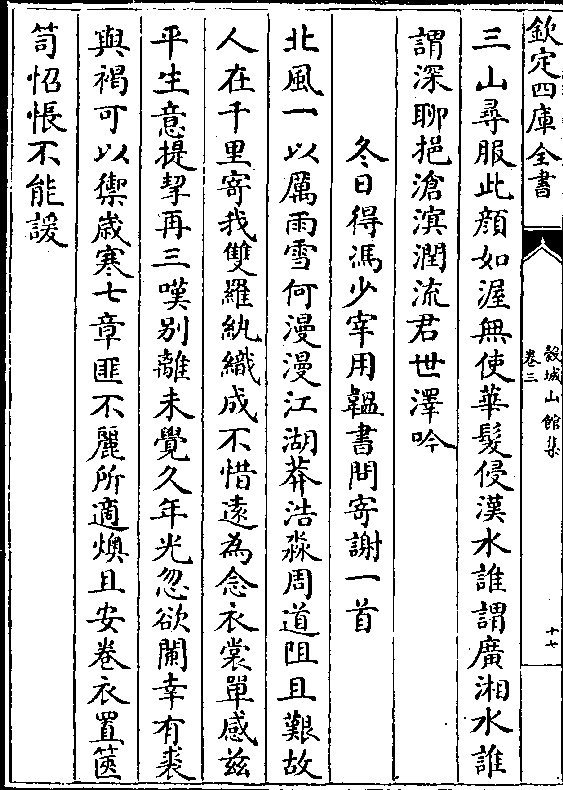 欽定四庫全書
穀城山館集
卷三
十七
三山尋服此顔如渥無使華髮侵漢水誰謂廣湘水誰
謂深聊挹滄溟潤流君世澤吟
冬日得馮少宰用韞書問寄謝一首
北風一以厲雨雪何漫漫江湖莽浩淼周道阻且艱故
人在千里寄我雙羅紈織成不惜遠為念衣裳單感兹
平生意提挈再三嘆别離未覺久年光忽欲闌幸有裘
與褐可以禦歲寒七章匪不麗所適燠且安卷衣置篋
笥怊悵不能諼